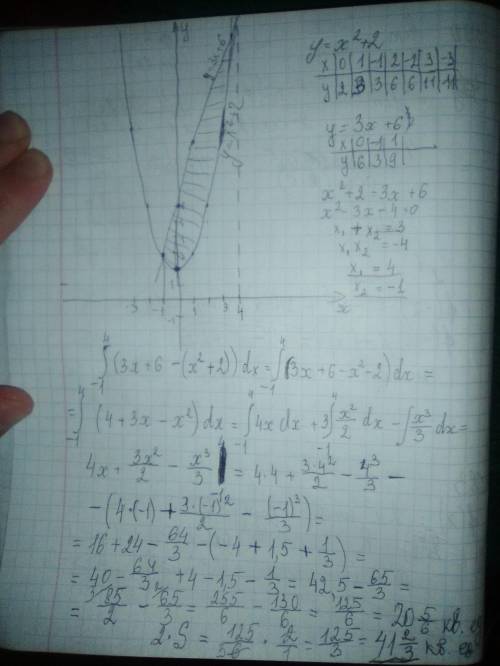 y
y = x²+2
x | 0 | 1 | -1 | 2 | -2 | 3 | -3
y | 2 | 3 | 3 | 6 | 6 | 11 | 11
y = 3x + 6
x | 0 | -1 | 1
y | 6 | 3 | 9
x² + 2 = 3x + 6
x² - 3x - 4 = 0
x₁ + x₂ = 3
x₁ x₂ = -4
x₁ = 4
x₂ = -1
y = x²+2
-3 -1 3 4 x
∫₋₁⁴ (3x + 6 - (x² + 2)) dx = ∫₋₁⁴ (3x + 6 - x² - 2) dx =
= ∫₋₁⁴ (4 + 3x - x²) dx = ∫₋₁⁴ 4x dx + 3∫₋₁⁴ x²/2 dx - ∫ x³/3 dx =
4x + 3x²/2 - x³/3 |⁴ = 4·4 + 3·4²/2 - 4³/3 -
- (4·(-1) + 3·(-1)²/2 - (-1)³/3) =
= 16 + 24 - 64/3 - (-4 + 1,5 + 1/3) =
= 40 - 64/3 + 4 - 1,5 - 1/3 = 42,5 - 65/3 =
= 85/2 - 65/3 = 255/6 - 130/6 = 125/6 = 20 5/6 кв. ед
2·S = 125/6 · 2/1 = 125/3 = 41 2/3 кв. ед